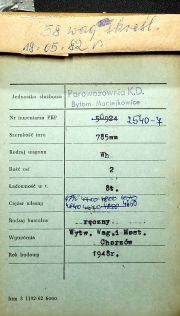 58 wag skreśl.
18.05.82 r
Jednostka służbowa Parowozownia K.D.
Bytom Maciejkowice
Nr inwentarza PKP 2540-7
Szerokość toru 785mm
Rodzaj wagonu Wh
Ilość osi 2
Ładowność w t. 8t.
Ciężar własny
Rodzaj hamulca ręczny
Wytwórnia Wytw. Wag. i Most.
Chorzów
Rok budowy 1948r.